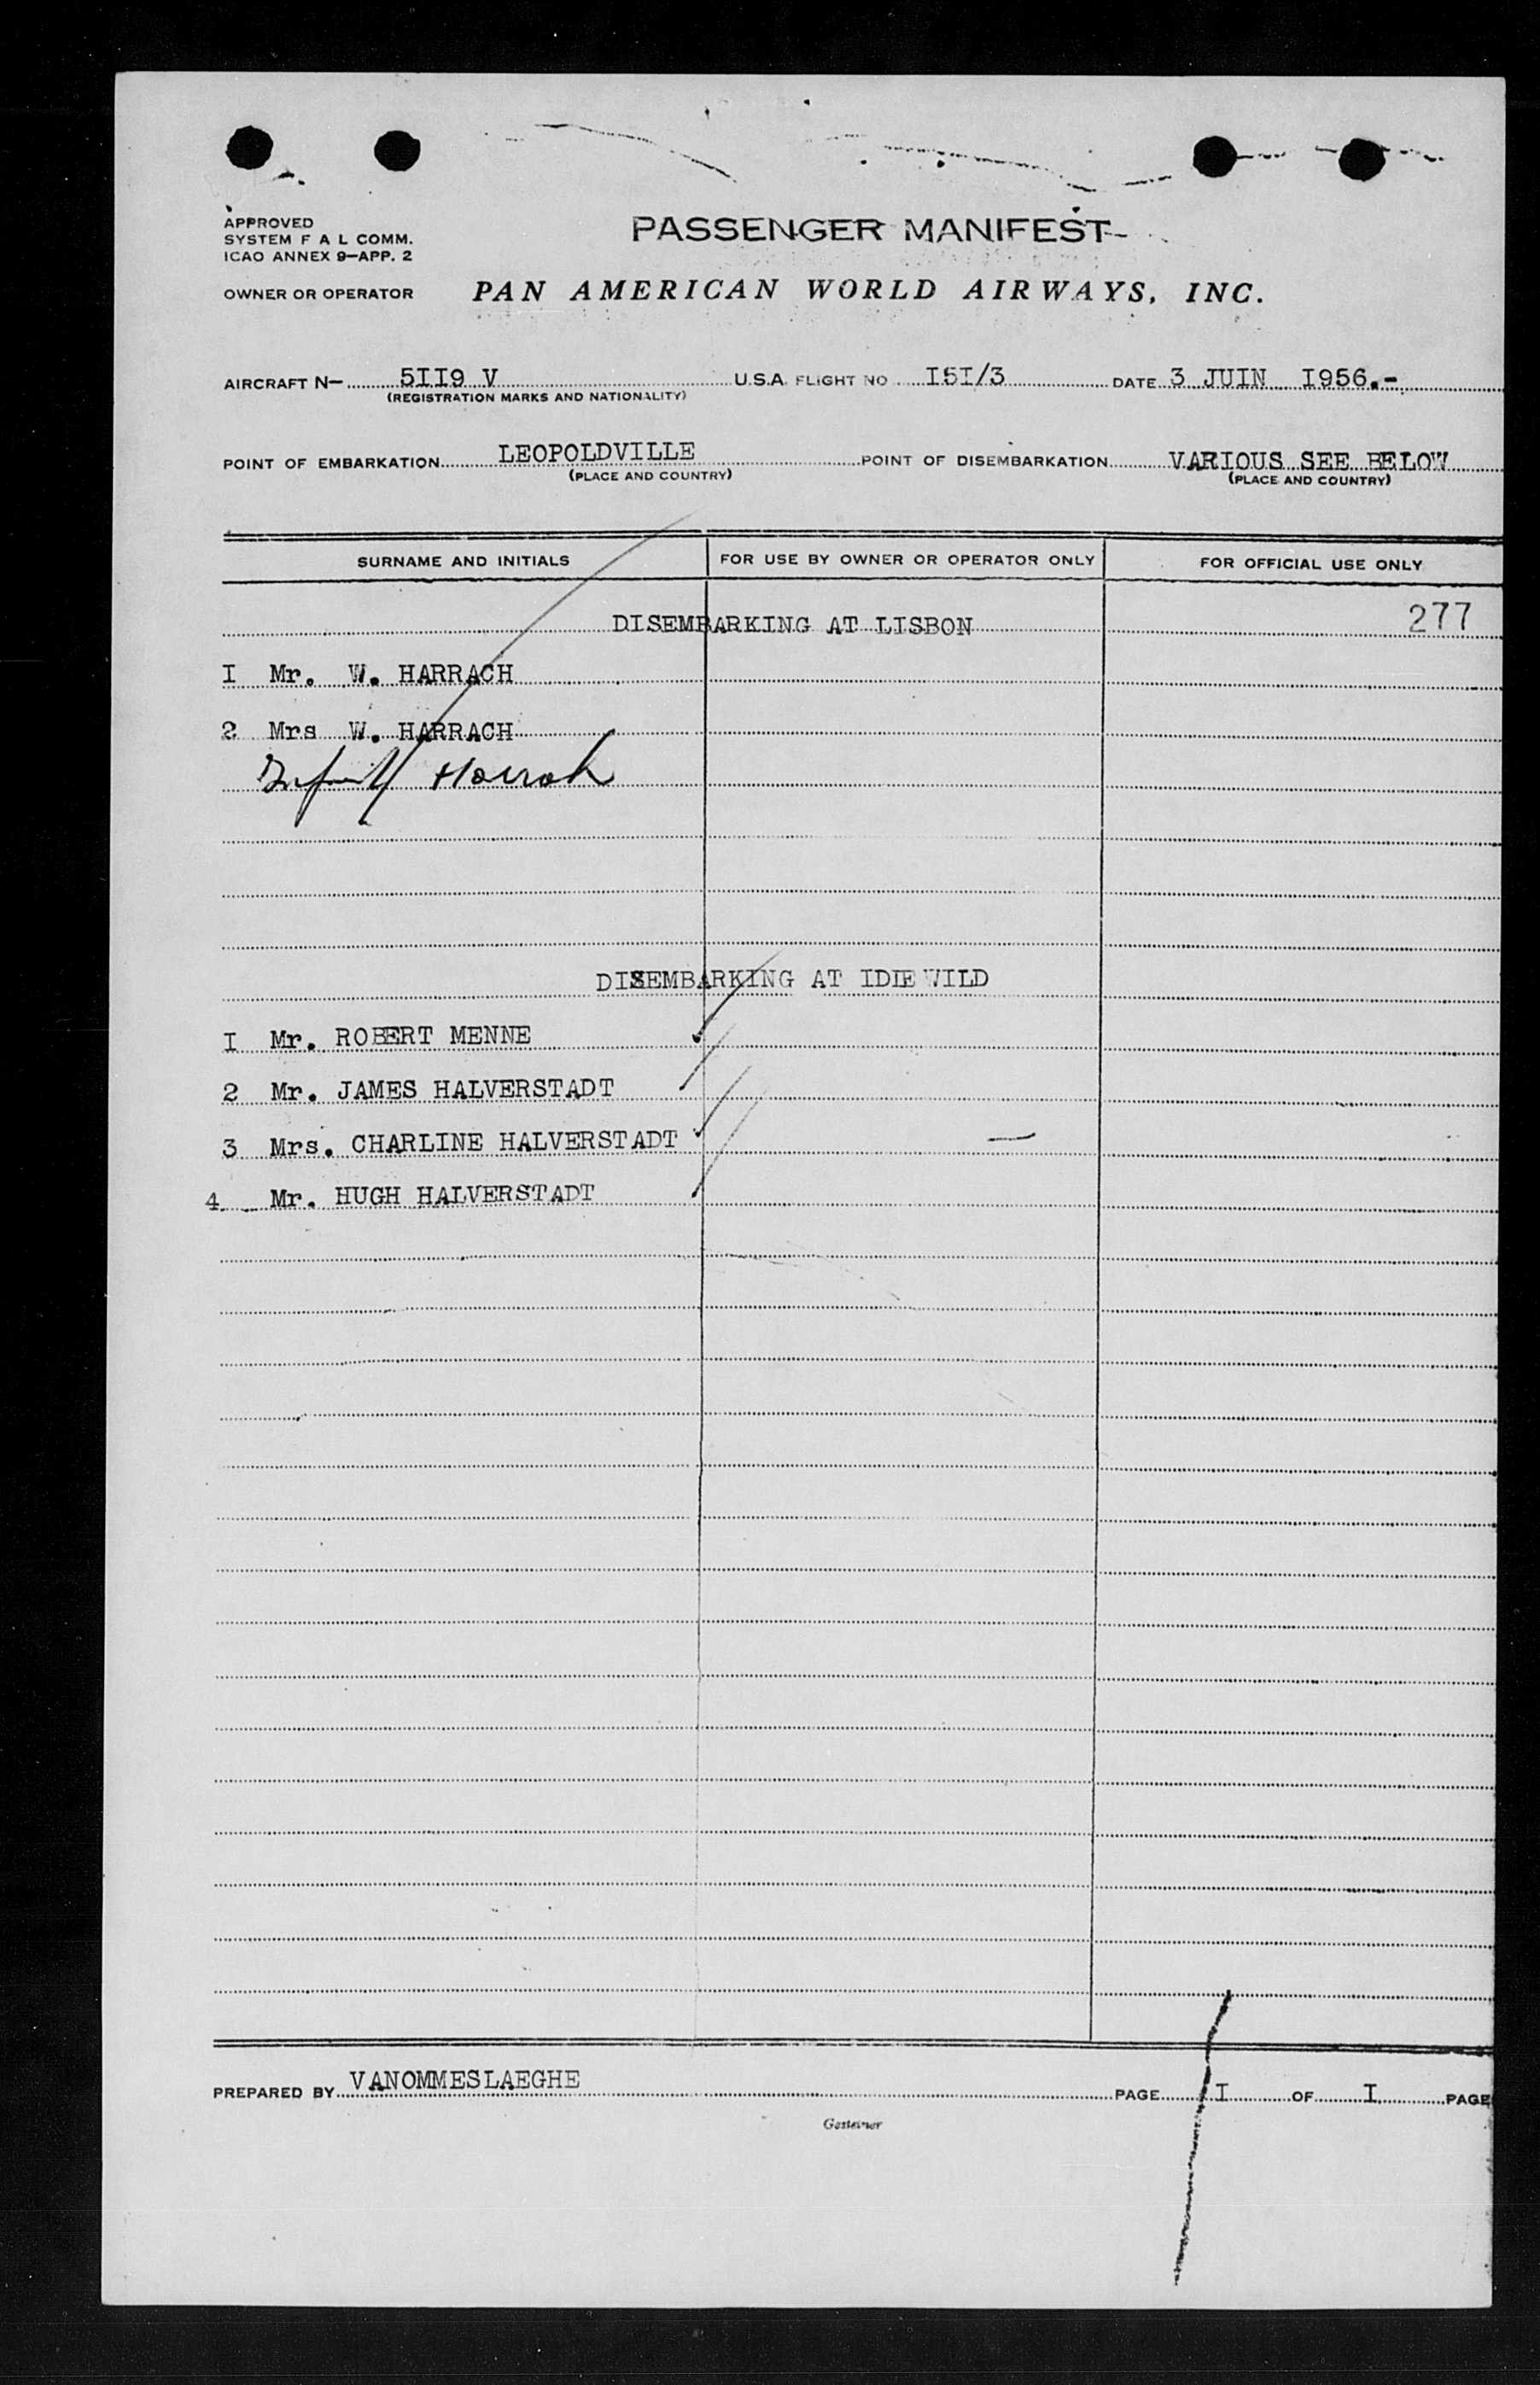 APPROVED
SYSTEM F A L COMM.
ICAO ANNEX 9—APP. 2
PASSENGER MANIFEST
OWNER OR OPERATOR PAN AMERICAN WORLD AIRWAYS, INC.
AIRCRAFT N— 5II9 V U.S.A. FLIGHT NO I5I/3 DATE 3 JUIN I956.-
(REGISTRATION MARKS AND NATIONALITY)
POINT OF EMBARKATION LEOPOLDVILLE POINT OF DISEMBARKATION VARIOUS SEE BELOW
(PLACE AND COUNTRY) (PLACE AND COUNTRY)
SURNAME AND INITIALS FOR USE BY OWNER OR OPERATOR ONLY FOR OFFICIAL USE ONLY
DISEMBARKING AT LISBON 277
I Mr. W. HARRACH
2 Mrs W. HARRACH
Harrah
DISEMBARKING AT IDLEWILD
I Mr. ROBERT MENNE
2 Mr. JAMES HALVERSTADT
3 Mrs. CHARLINE HALVERSTADT
4 Mr. HUGH HALVERSTADT
PREPARED BY VANOMMESLAEGHE PAGE I OF I PAGE
Gestetner